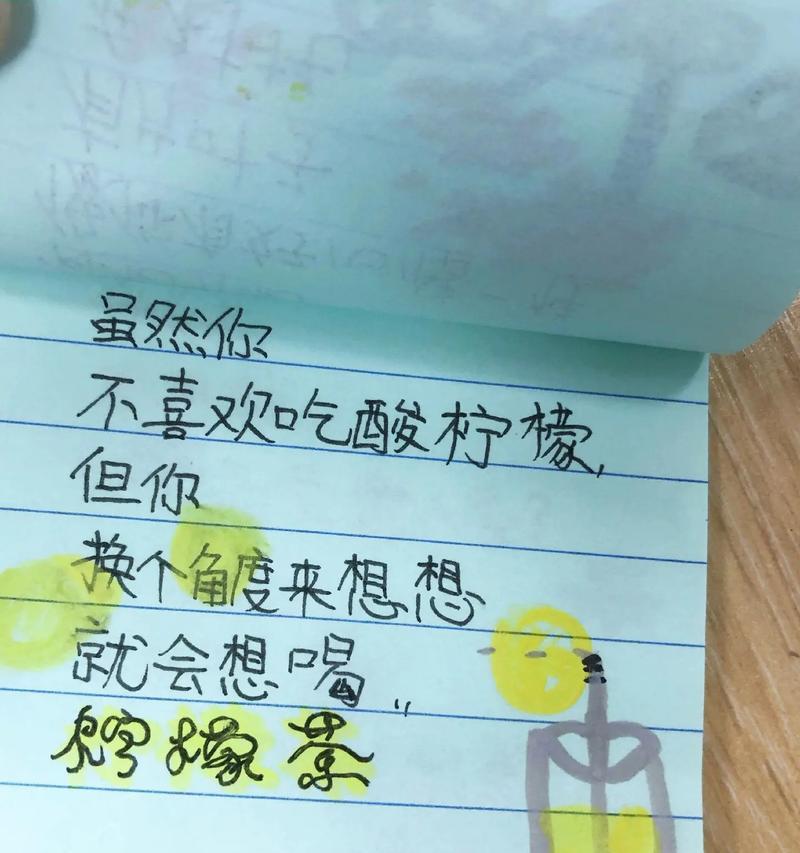 虽然你
不喜欢吃酸柠檬,
但你
换个角度来想想
就会想喝,,
柠檬茶